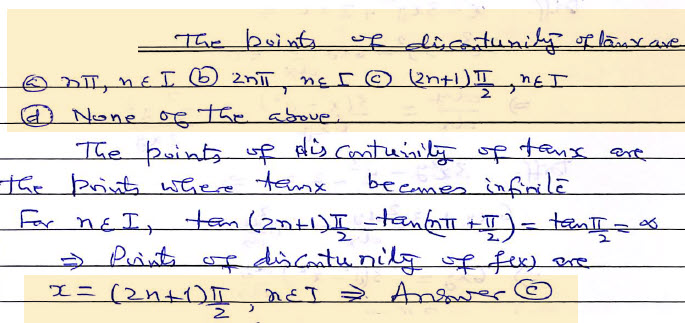 The points of discontunity of tanx are
(a) nπ, n∈I (b) 2nπ, n∈I (c) (2n+1)π/2, n∈I
(d) None of the above.
The points of discontuinity of tanx are
the points where tanx becomes infinite
For n∈I, tan(2n+1)π/2 = tan(nπ+π/2) = tanπ/2 = ∞
⇒ Points of discontunity of f(x) are
x = (2n+1)π/2, n∈I ⇒ Answer (c)